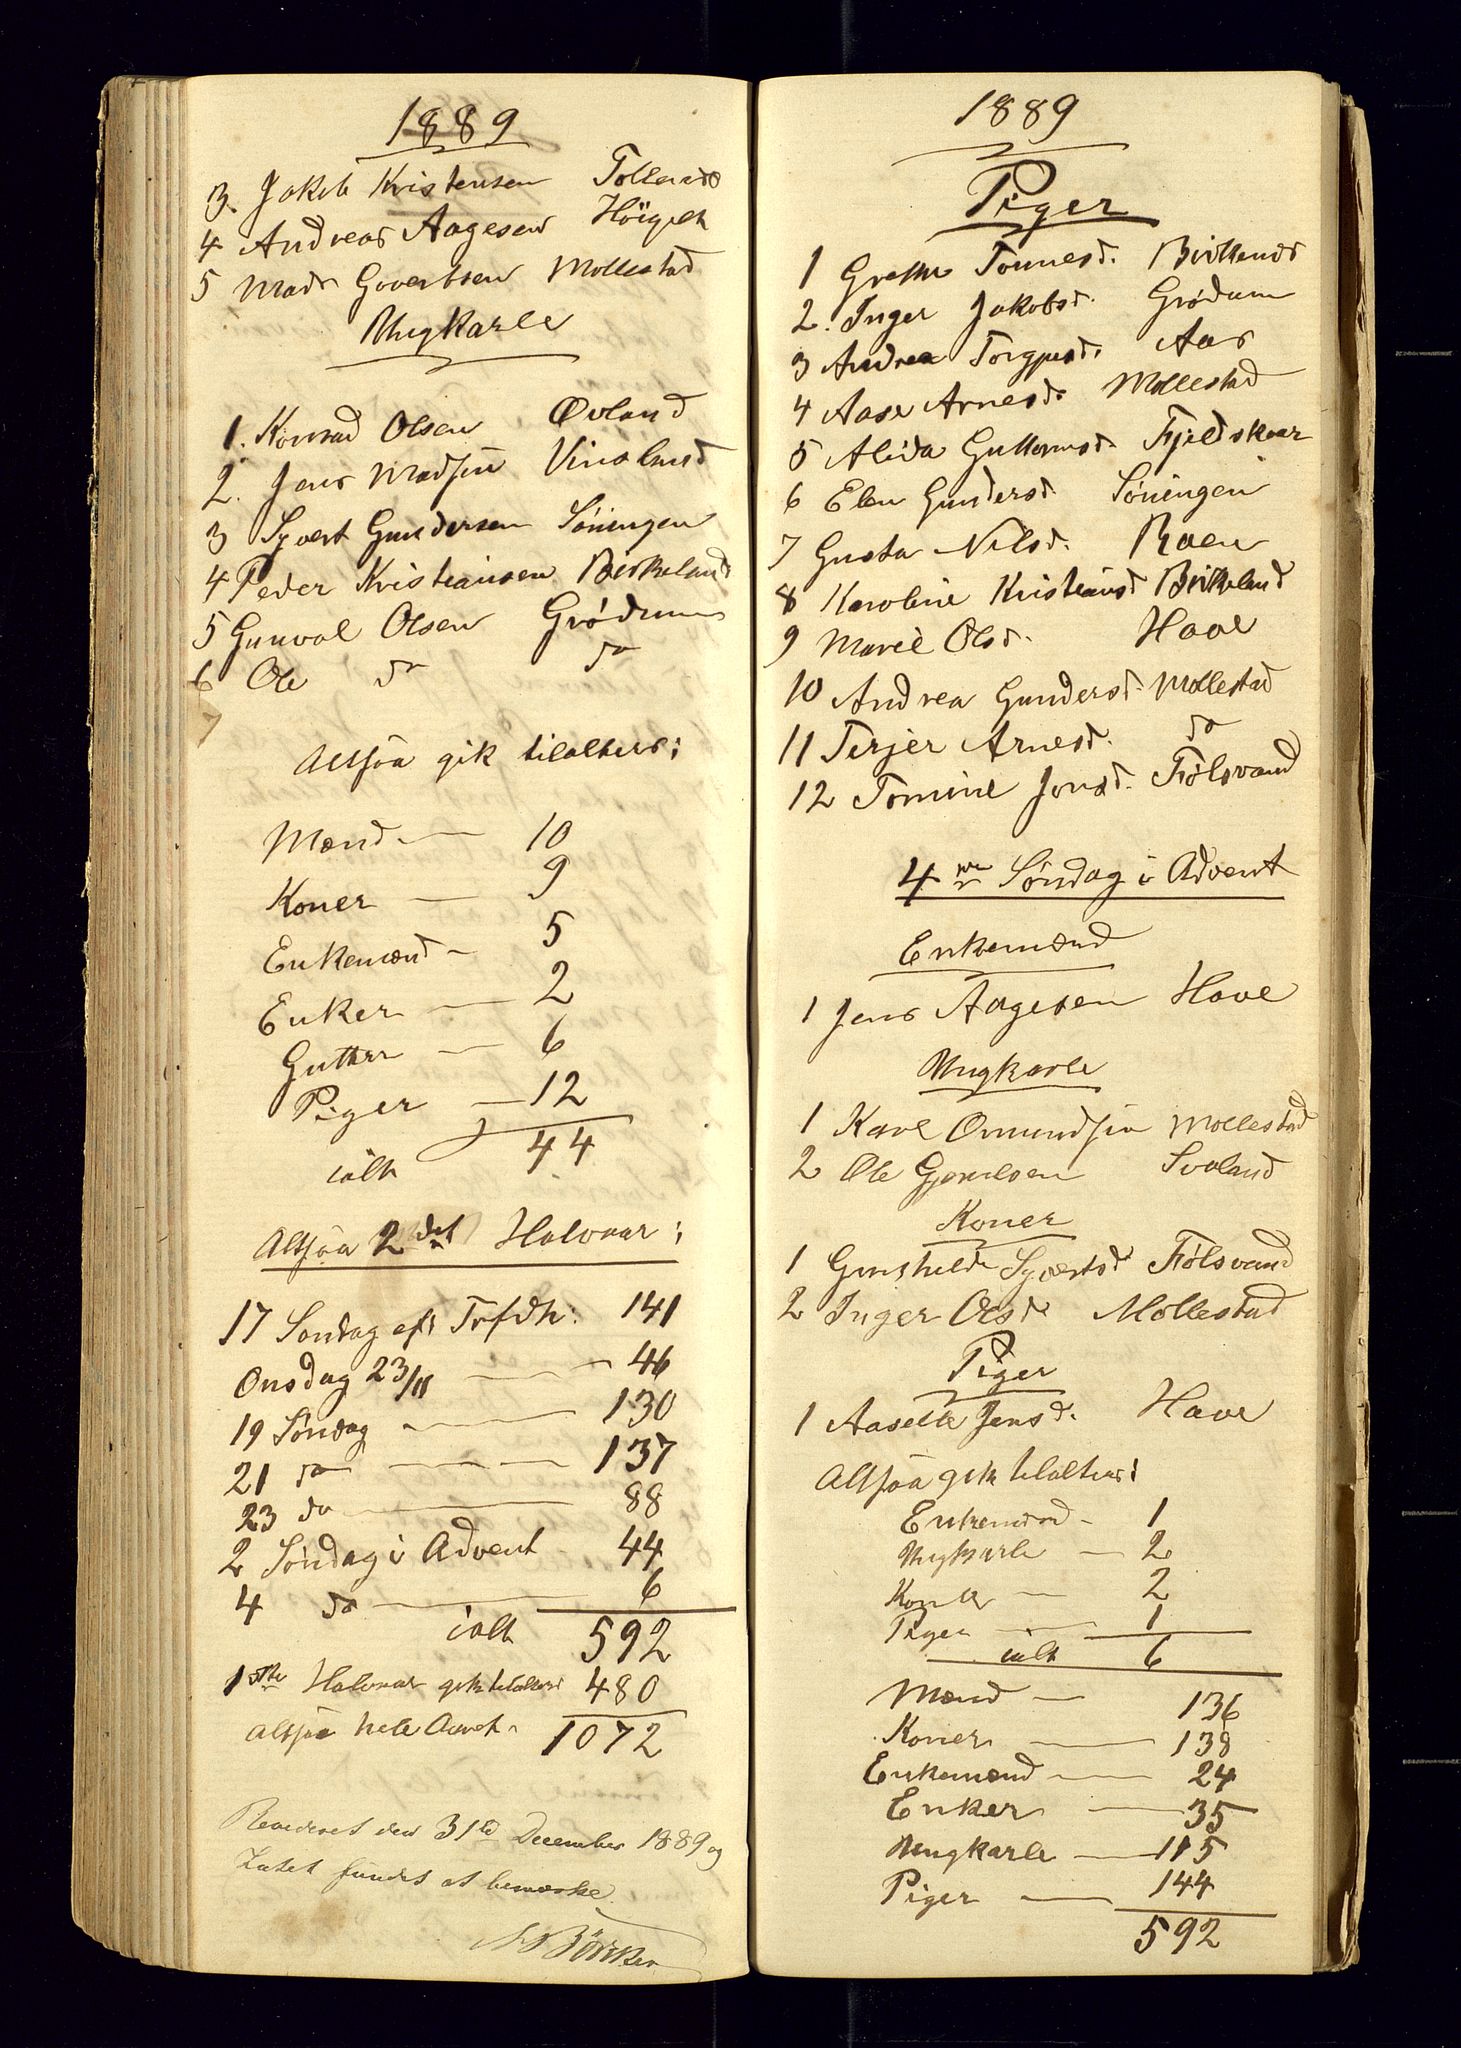 1889
3. Jakob Kristensen
4 Andreas Aagesen
5 Mads Govertsen Mollestad
Ungkarle
1. Konrad Olsen Øvland
2. Jens Madsen Vinoland
3 Syvert Gundersen Søningen
4 Peder Kristiansen Birkeland
5 Gunval Olsen Grødum
6 Ole do do
7
Altsaa gik tilalters:
Mænd — 10
Koner — 9
Enkemænd — 5
Enker — 2
Gutter — 6
Piger — 12
ialt 44
Altsaa 2det Halvaar:
17 Søndag eft Trfdh: 141
Onsdag 23/11 — 46
19 Søndag — 130
21 do — 137
23 do — 88
2 Søndag i Advent - 44
4 do — 6
ialt 592
1ste Halvaar gik tilalters 480
Altsaa hele Aaret 1072
Revideret den 31te December 1889 og
Intet fundet at bemærke.
1889
Piger
1 Grethe Tønnesd. Birkeland
2. Inger Jakobsd. Grødum
3 Andrea Torgjusd. Aas
4 Aase Arnesd. Mollestad
5 Alida Guttormsd. Fjeldskaar
6 Elen Gundersd. Søningen
7 Gusta Nilsd. Roen
8 Karoline Kristiansd Birkeland
9 Marie Olsd. Have
10 Andrea Gundersd. Mollestad
11 Terjer Arnesd. do
12 Tomine Jonsd. Følsvand
4de Søndag i Advent
Enkemænd
1 Jens Aagesen Have
Ungkarle
1 Karl Omundsen Mollestad
2 Ole Gjerulsen Svaland
Koner
1 Gunhild Syvertsd Følsvand
2 Inger Olsd Mollestad
Piger
1 Aaselle Jensd. Have
Altsaa gik tilalters:
Enkemænd - 1
Ungkarle — 2
Koner — 2
Piger — 1
ialt 6
Mænd — 136
Koner — 138
Enkemænd — 24
Enker — 35
Ungkarle — 115
Piger — 144
592